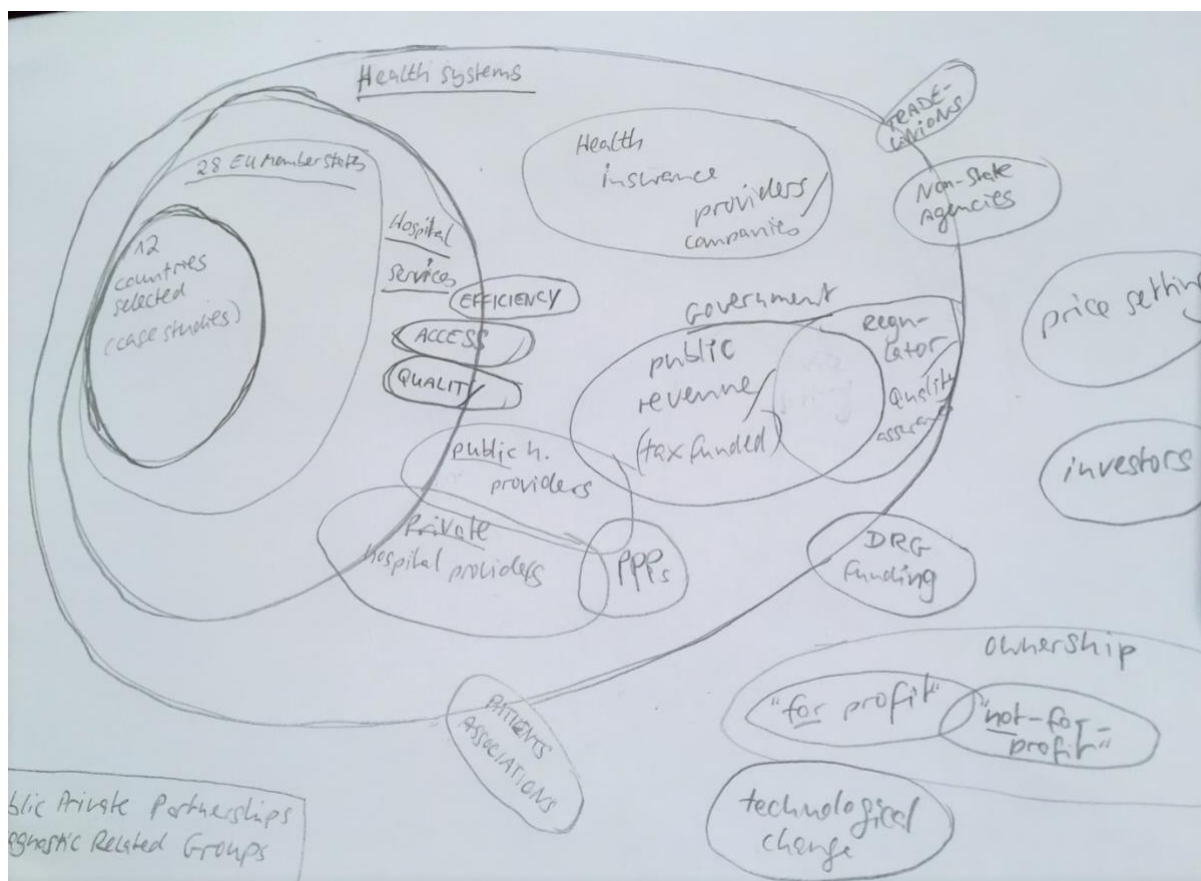 Health systems
28 EU Member states
12
countries
selected
(case studies)
Hospital
services
EFFICIENCY
ACCESS
QUALITY
Health
insurance
providers/
companies
TRADE-
UNIONS
Non-state
Agencies
price setting
investors
Government
public
revenue/
(tax funded)
Regu-
lator
Quality
assurance
public h.
providers
Private
hospital providers
PPPs
DRG
funding
ownership
"for profit"
"not-for-
profit"
PATIENTS
ASSOCIATIONS
technological
change
blic Private Partnerships
agnostic Related Groups